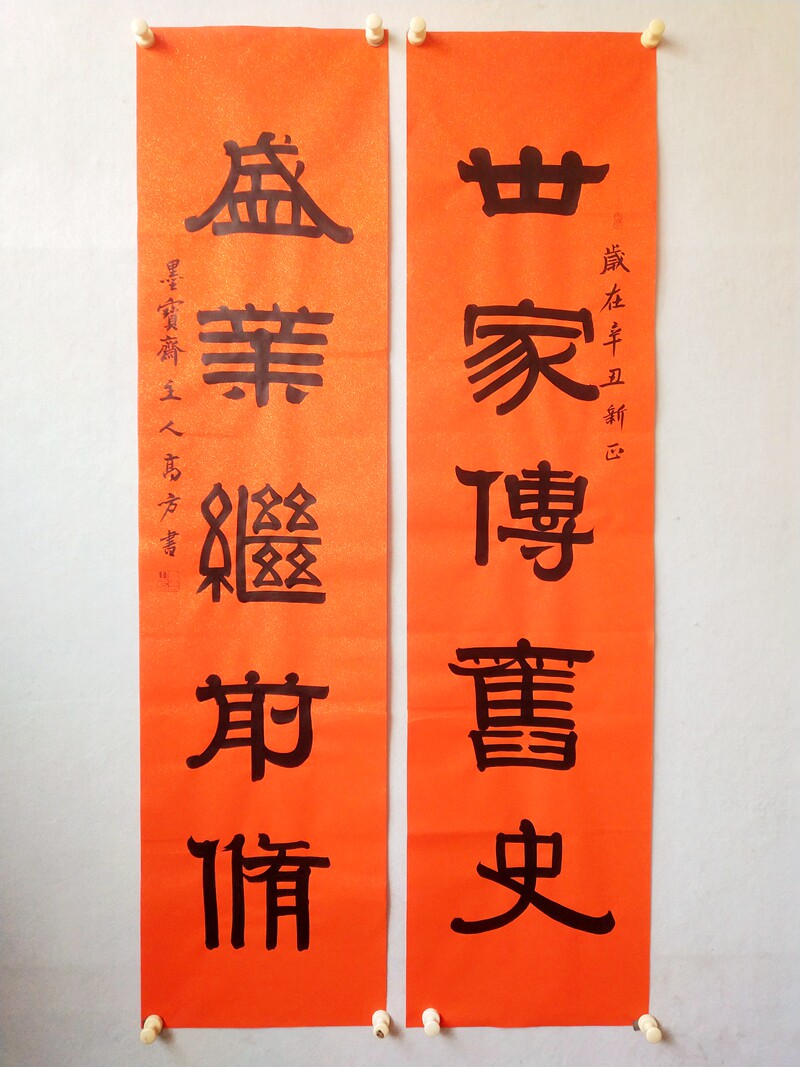 世家傳舊史
歲在辛丑新正
盛業繼前脩
墨寶齋主人高方書